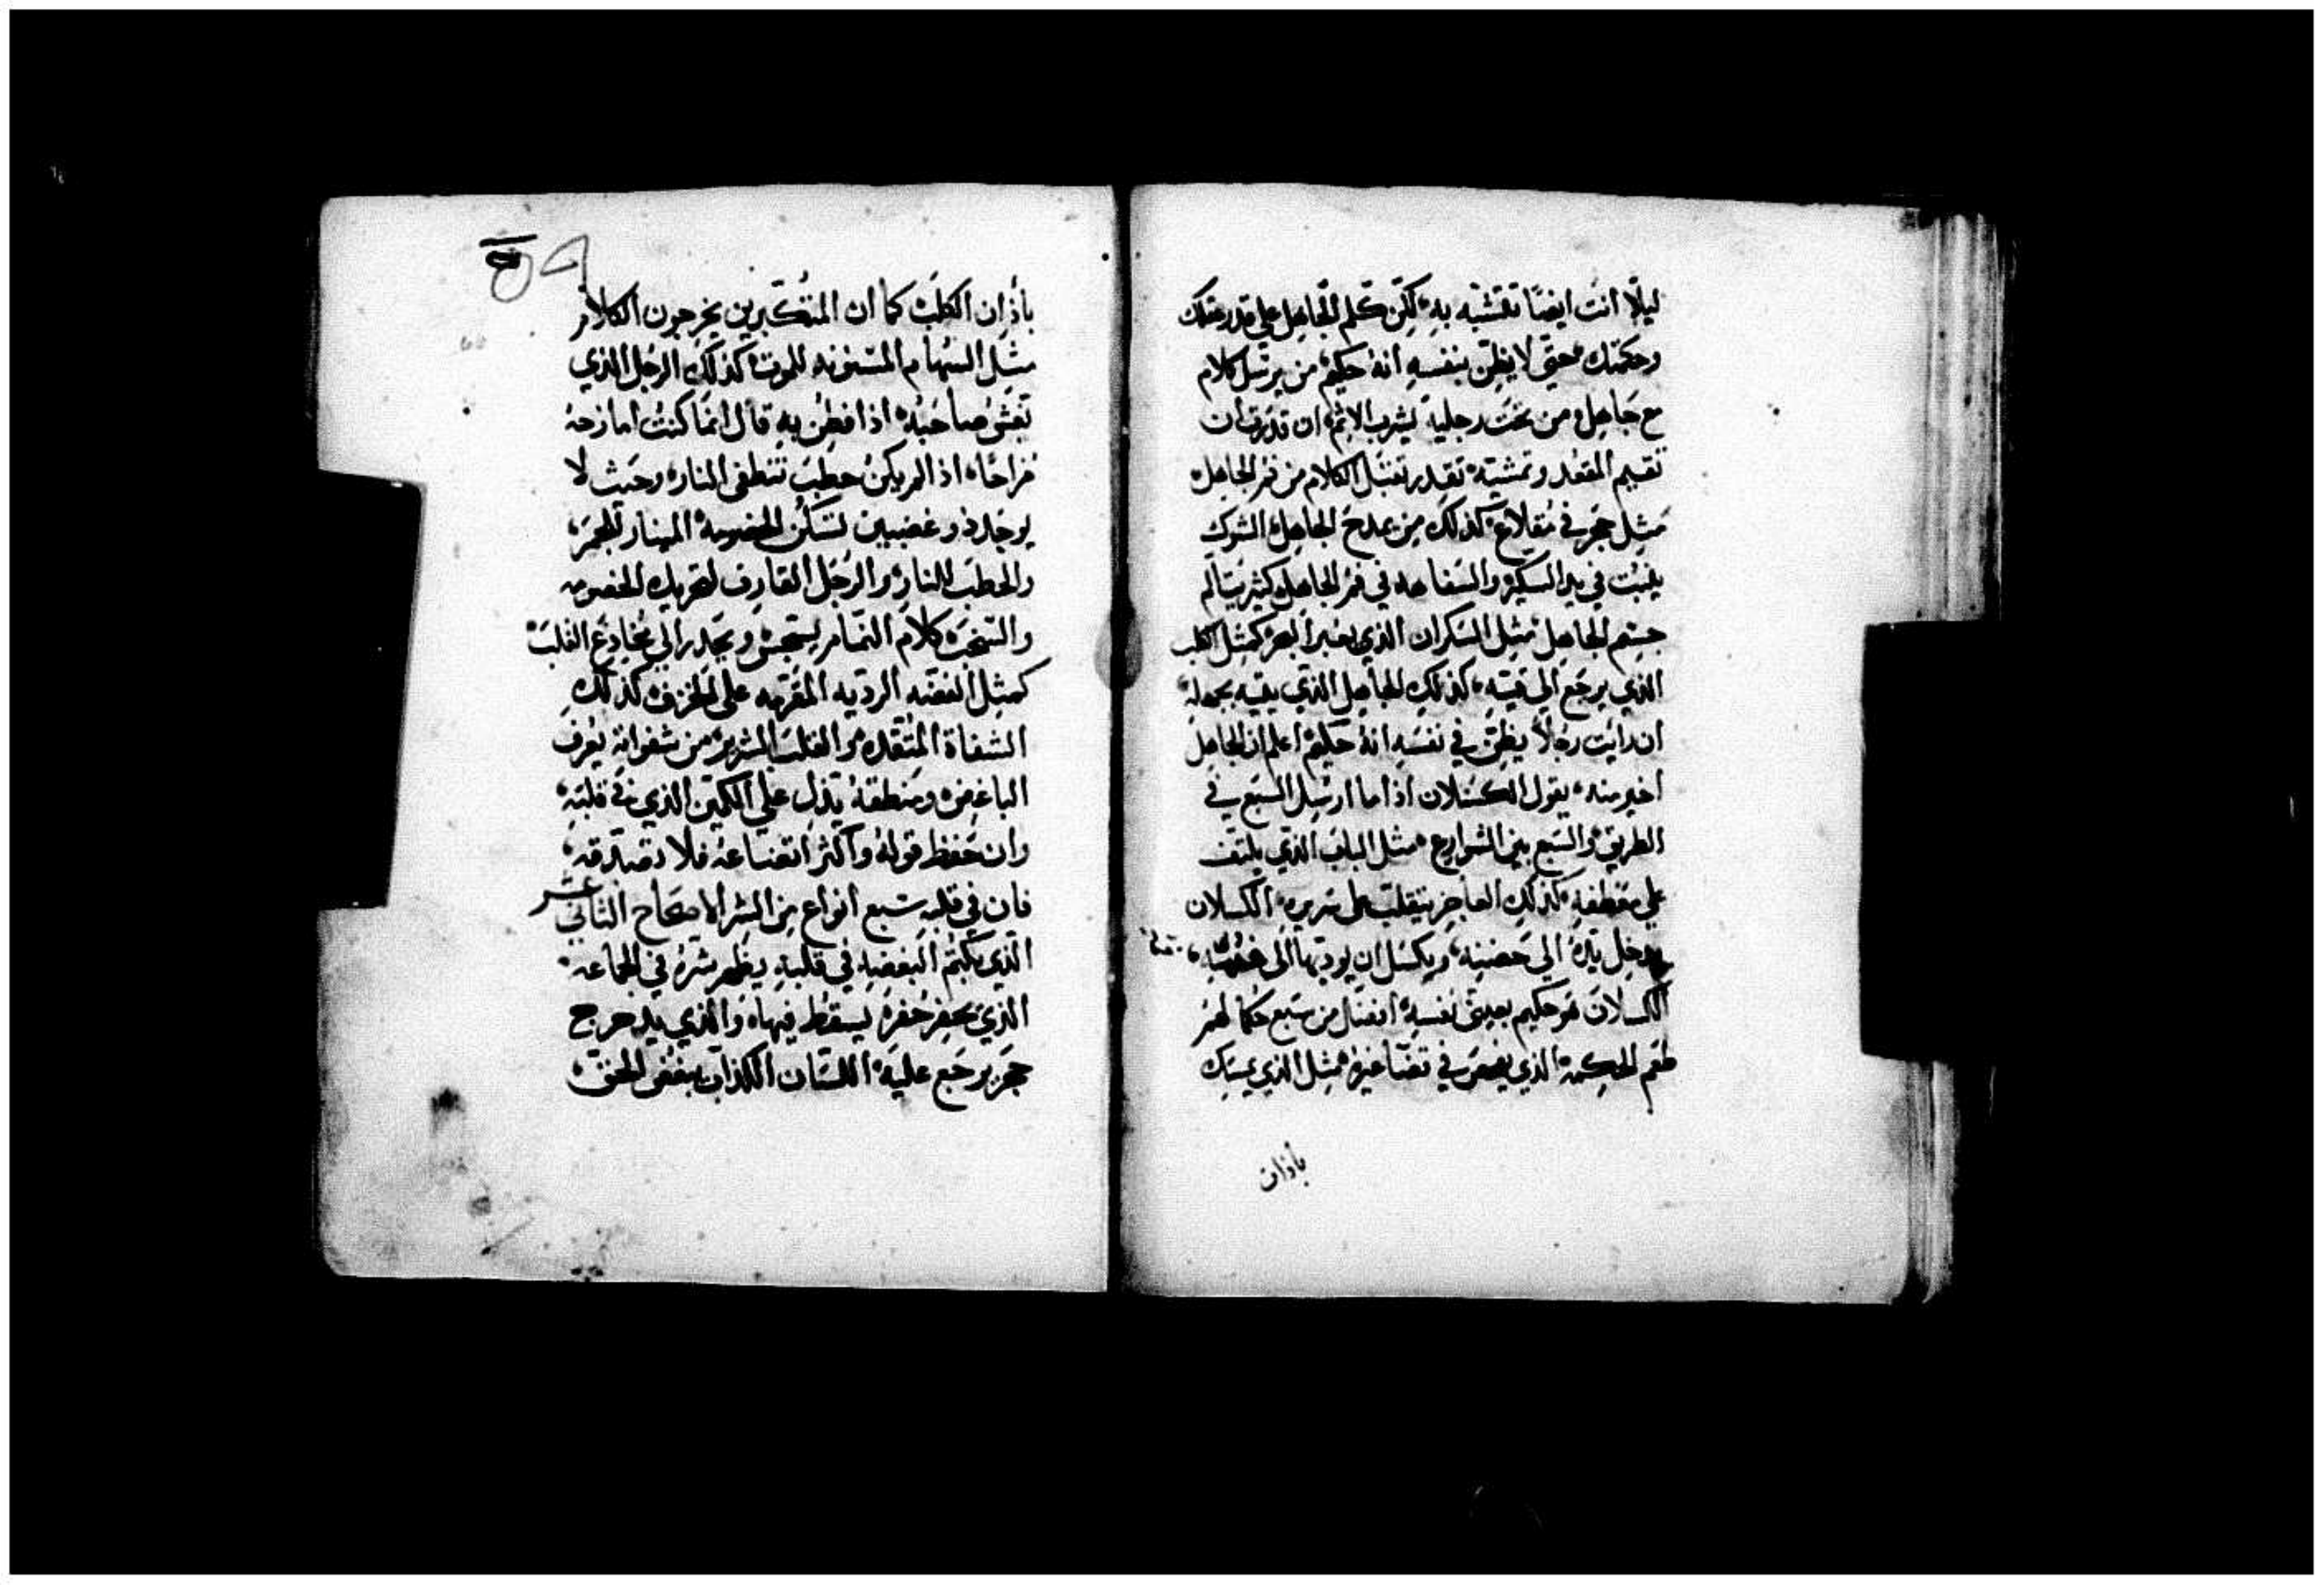 ليلّا انت ايضًا تتشبه به لكن كلم الجاهل علي قدر عقلك
وحكمتك حتى لا يظن بنفسه انه حكيم من يرسل كلام
مع جاهل ومن تحت رجليه يشرب الاثم ان قدرت ان
تقيم المقعد وتمشيه تقدر تقبل الكلام من فم الجاهل
مثل حجر في مقلاع كذلك من يمدح الجاهل الشوك
ينبت في يد السكير والسفاهه في فم الجاهل كثير يتالم
جسم الجاهل مثل السكران الذي يعبر البحر كمثل الكلب
الذي يرجع الي قيئه كذلك الجاهل الذي بجهله
ان رايت رجلاً يظن في نفسه انه حكيم اعلم ان الجاهل
اخير منه يقول الكسلان اذا ما ارسل السبع في
الطريق والسبع بين الشوارع مثل الباب الذي يلتف
علي كذلك العاجز يتقلب على سريره الكسلان
يدخل يده الي حضنه ويكسل ان يوديها الى
الكسلان هو حكيم بعيني نفسه افضل من سبع حكما لهم
طعم الحكمه الذي في غيره مثل الذي يمسك
باذان
باذان الكلب كما ان المتكبرين يخرجون الكلام
مثل السهام المسنونه للموت كذلك الرجل الذي
يغش صاحبه اذا فطن به قال انما كنت امازحه
مزاحًا اذ الم يكن حطب تنطفي النار وحيث لا
يوجد ذو غضبين تسكن الخصومه للجمر
والحطب للنار والرجل القارف لتحريك الخصومه
والسجس كلام النمام يسجس ويحدر الى مخادع القلب
كمثل الفضه الرديه على الخزف كذلك
الشفاة المتقده والقلب الشرير من شفواته يعرف
الباغض ومنطقه يدل علي الكمين الذي في قلبه
وان حفظ قوله واكثر اتضاعه فلا تصدقه
فان في قلبه سبع انواع من الشر الاصحاح الثاني عشر
الذي يكتم البغضه في قلبه يظهر شره في الجماعه
الذي يحفر حفره يسقط فيها والذي يدحرج
حجر يرجع عليه اللسان الكذاب يبغض الحق